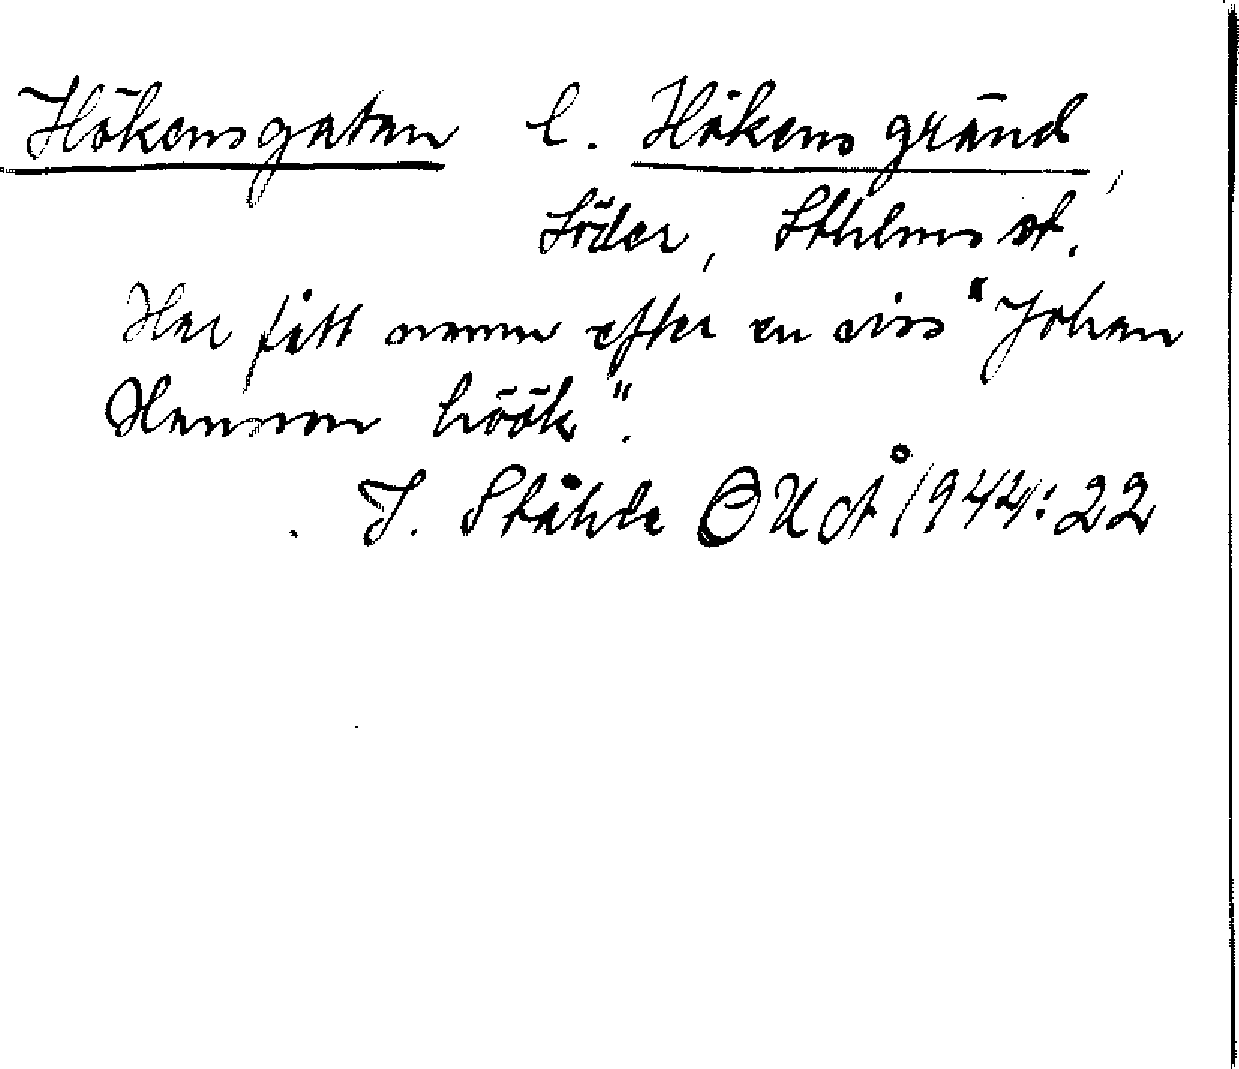 Hökensgatan l. Hökens gränd,
Söder, Sthlms st.
Har fått namn efter en viss "Johan
Hansson höök".
I. Ståhle OUÅ 1944:22